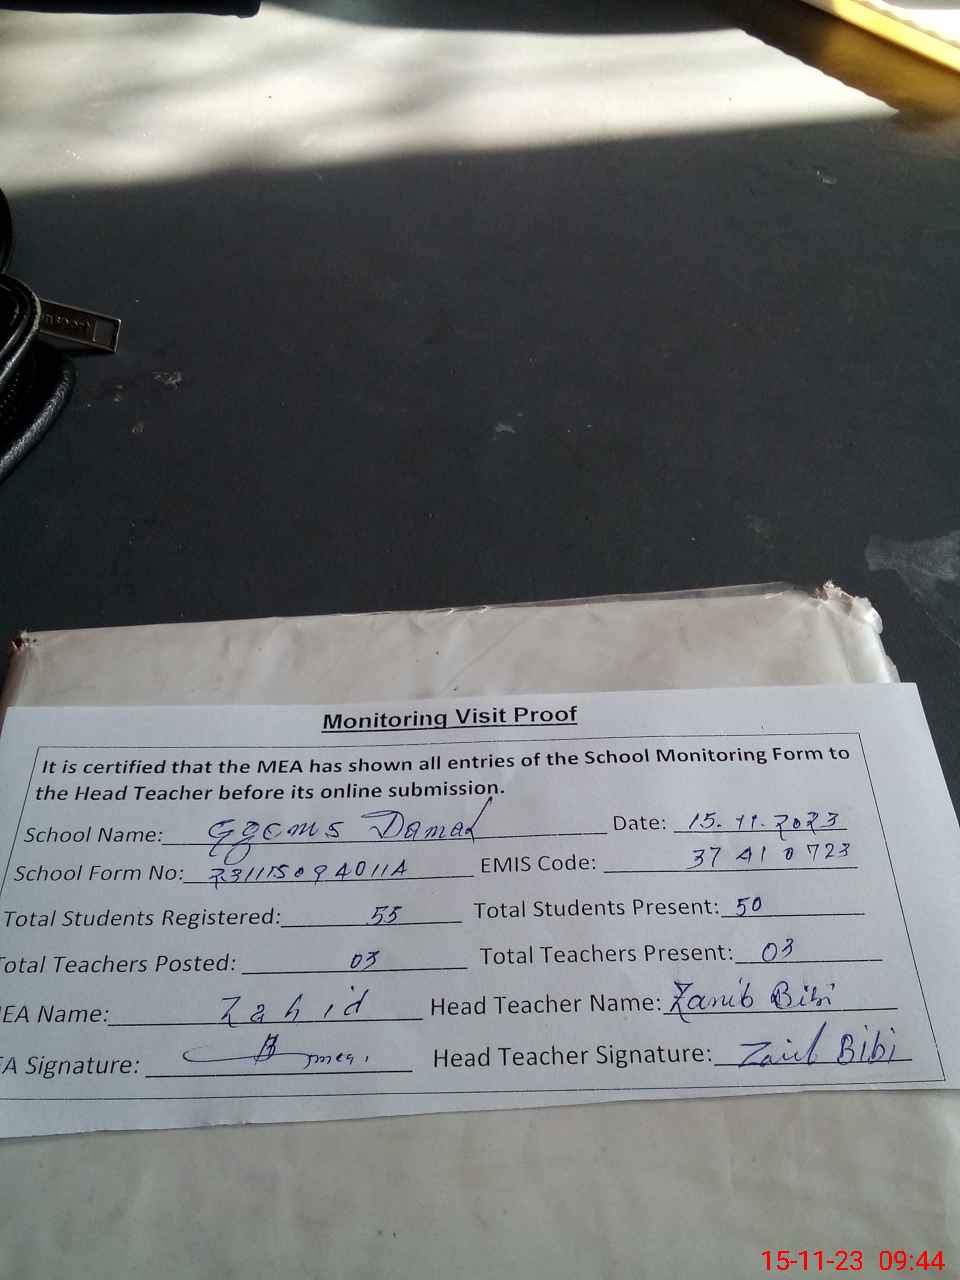 Monitoring Visit Proof
It is certified that the MEA has shown all entries of the School Monitoring Form to
the Head Teacher before its online submission.
School Name: Ggcms Damal Date: 15.11.2023
School Form No: 231115094011A EMIS Code: 37410723
Total Students Registered: 55 Total Students Present: 50
Total Teachers Posted: 03 Total Teachers Present: 03
EA Name: Zahid Head Teacher Name: Zanib Bibi
A Signature: mea. Head Teacher Signature: Zanib Bibi
15-11-23 09:44